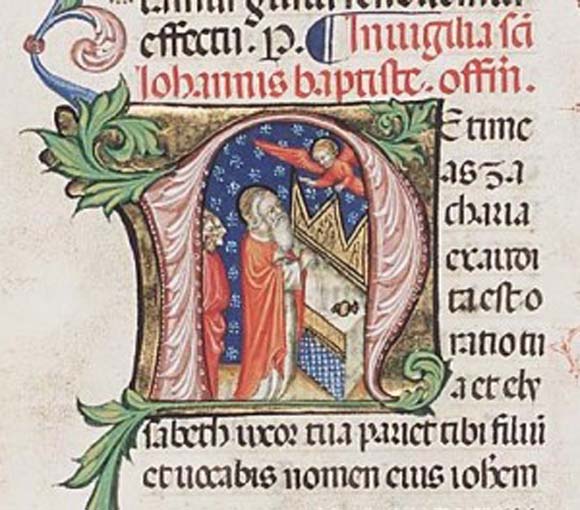 effectū. P. In uigilia sc̄i
Iohannis baptiste. offm̄.
E time
as ꝫa
charia
exaudi
ta est o
ratio tu
a et ely
sabeth uxor tua pariet tibi filiū
et uocabis nomen eius ioh̄em